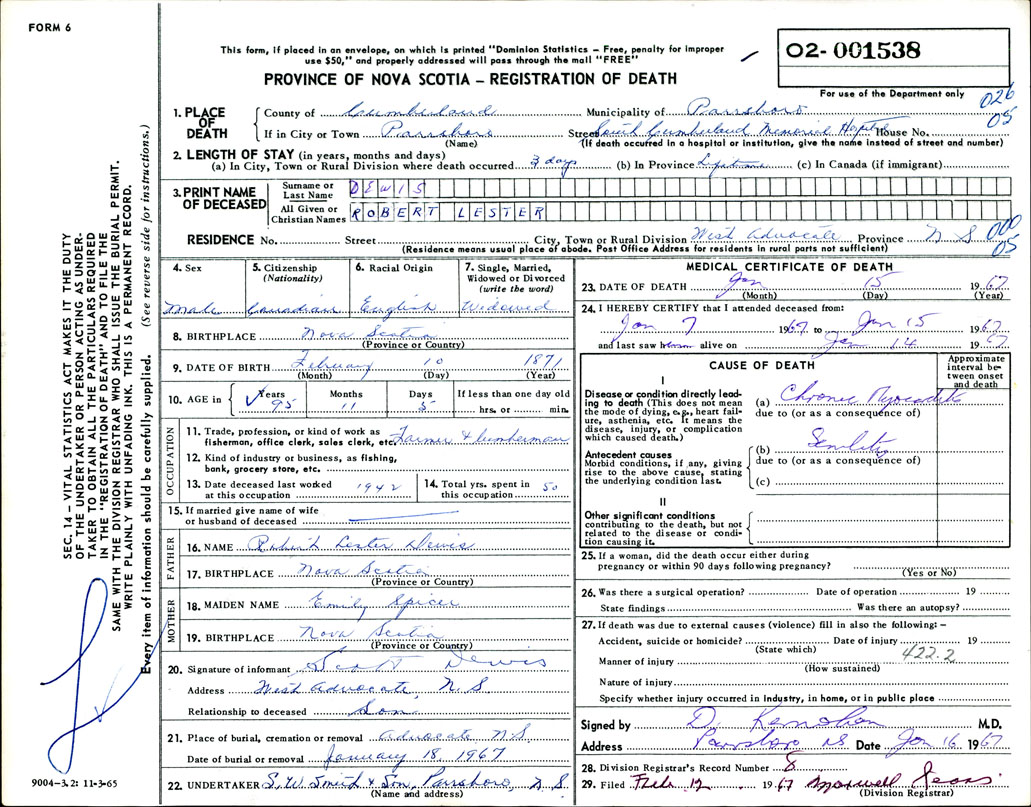 FORM 6
This form, if placed in an envelope, on which is printed "Dominion Statistics – Free, penalty for improper
use $50," and properly addressed will pass through the mail "FREE"
PROVINCE OF NOVA SCOTIA – REGISTRATION OF DEATH
02- 001538
For use of the Department only
026
05
1. PLACE OF DEATH County of Cumberland Municipality of Parrsboro
If in City or Town Parrsboro Street South Cumberland Memorial Hospital House No.
(Name) (If death occurred in a hospital or institution, give the name instead of street and number)
2. LENGTH OF STAY (in years, months and days)
(a) In City, Town or Rural Division where death occurred 3 days (b) In Province Lifetime (c) In Canada (if immigrant)
3. PRINT NAME OF DECEASED Surname or Last Name DEWIS
All Given or Christian Names ROBERT LESTER
RESIDENCE No. Street City, Town or Rural Division West Advocate Province N S
000
05
(Residence means usual place of abode. Post Office Address for residents in rural parts not sufficient)
4. Sex Male
5. Citizenship (Nationality) Canadian
6. Racial Origin English
7. Single, Married, Widowed or Divorced (write the word) Widowed
8. BIRTHPLACE Nova Scotia
(Province or Country)
9. DATE OF BIRTH February 10 1871
(Month) (Day) (Year)
10. AGE in Years 95 Months 11 Days 5 If less than one day old hrs. or min.
OCCUPATION
11. Trade, profession, or kind of work as fisherman, office clerk, sales clerk, etc. Farmer & lumberman
12. Kind of industry or business, as fishing, bank, grocery store, etc.
13. Date deceased last worked at this occupation 1942
14. Total yrs. spent in this occupation 50
15. If married give name of wife or husband of deceased
FATHER
16. NAME Robert Lester Dewis
17. BIRTHPLACE Nova Scotia
(Province or Country)
MOTHER
18. MAIDEN NAME Emily Spicer
19. BIRTHPLACE Nova Scotia
(Province or Country)
20. Signature of informant Scott Dewis
Address West Advocate, N. S
Relationship to deceased Son
21. Place of burial, cremation or removal Advocate N.S
Date of burial or removal January 18, 1967
22. UNDERTAKER S. W. Smith & Son, Parrsboro, N S
(Name and address)
MEDICAL CERTIFICATE OF DEATH
23. DATE OF DEATH Jan 15 1967
(Month) (Day) (Year)
24. I HEREBY CERTIFY that I attended deceased from:
Jan 7 1967 to Jan 15 1967
and last saw h alive on Jan 14 1967
CAUSE OF DEATH
Approximate interval between onset and death
I
Disease or condition directly leading to death (This does not mean the mode of dying, e.g., heart failure, asthenia, etc. It means the disease, injury, or complication which caused death.)
(a) Chronic Myocarditis
due to (or as a consequence of)
Antecedent causes
Morbid conditions, if any, giving rise to the above cause, stating the underlying condition last.
(b) Senility
due to (or as a consequence of)
(c)
II
Other significant conditions
contributing to the death, but not related to the disease or condition causing it.
25. If a woman, did the death occur either during
pregnancy or within 90 days following pregnancy?
(Yes or No)
26. Was there a surgical operation? Date of operation 19
State findings Was there an autopsy?
27. If death was due to external causes (violence) fill in also the following: –
Accident, suicide or homicide? Date of injury 19
(State which) 422.2
Manner of injury
(How sustained)
Nature of injury
Specify whether injury occurred in industry, in home, or in public place
Signed by D. Kernohan M.D.
Address Parrsboro NS Date Jan 16 1967
28. Division Registrar's Record Number 8
29. Filed Feb 12 1967 Maxwell
(Division Registrar)
SEC. 14 – VITAL STATISTICS ACT MAKES IT THE DUTY
OF THE UNDERTAKER OR PERSON ACTING AS UNDER-
TAKER TO OBTAIN ALL THE PARTICULARS REQUIRED
IN THE "REGISTRATION OF DEATH" AND TO FILE THE
SAME WITH THE DIVISION REGISTRAR WHO SHALL ISSUE THE BURIAL PERMIT.
WRITE PLAINLY WITH UNFADING INK. THIS IS A PERMANENT RECORD.
Every item of information should be carefully supplied. (See reverse side for instructions.)
9004–3.2: 11-3-65